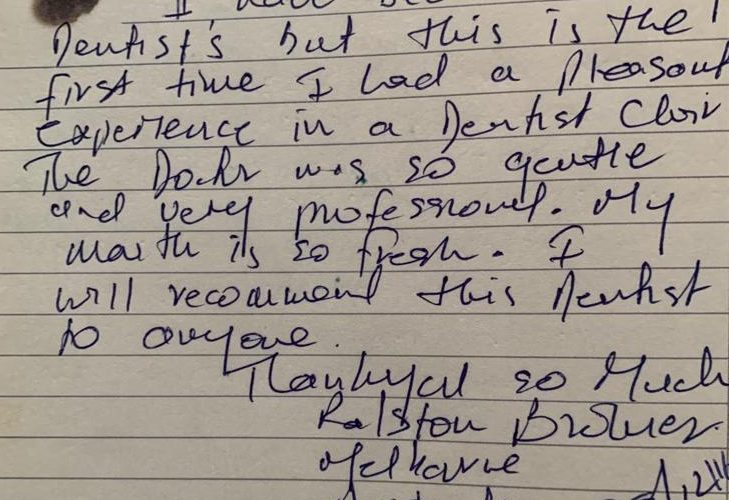 I have
Dentist's but this is the
first time I had a Pleasant
experience in a Dentist Chair
The Doctor was so gentle
and very professional. My
mouth is so fresh. I
will recommend this Dentist
to anyone.
Thankyou so Much
Ralston
Melbourne